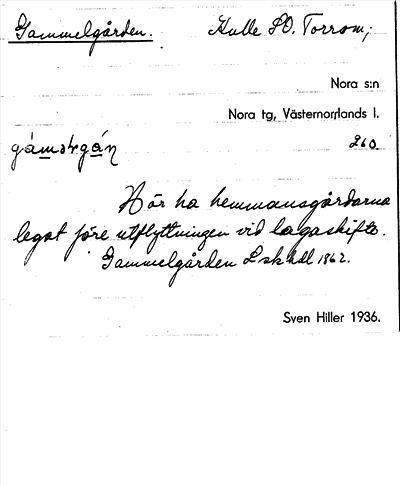 Gammelgården. Hulle SO. Torrom;
Nora s:n
Nora tg, Västernorrlands l.
260
Här ha hemmansgårdarna
legat före utflyttningen vid lagaskifte.
Gammelgården Lskhdl 1862.
Sven Hiller 1936.